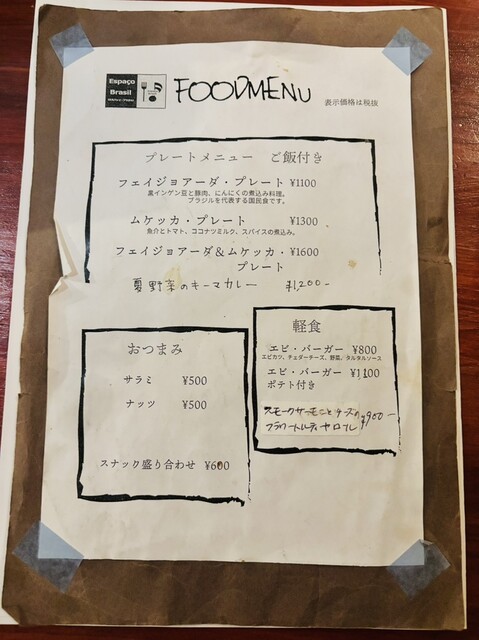 Espaço
Brasil
FOODMENU
表示価格は税抜
プレートメニュー ご飯付き
フェイジョアーダ・プレート ¥1100
黒インゲン豆と豚肉、にんにくの煮込み料理。
ブラジルを代表する国民食です。
ムケッカ・プレート ¥1300
魚介とトマト、ココナツミルク、スパイスの煮込み。
フェイジョアーダ&ムケッカ・ ¥1600
プレート
夏野菜のキーマカレー ¥1,200-
おつまみ
サラミ ¥500
ナッツ ¥500
スナック盛り合わせ ¥600
軽食
エビ・バーガー ¥800
エビカツ、チェダーチーズ、野菜、タルタルソース
エビ・バーガー ¥1100
ポテト付き
スモークサーモンとチーズの ¥900-
フラワートルティヤロール